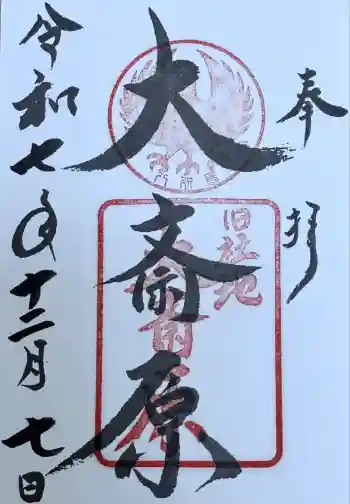 奉拝
大斎原
旧社地
大斎原
令和七年十二月七日